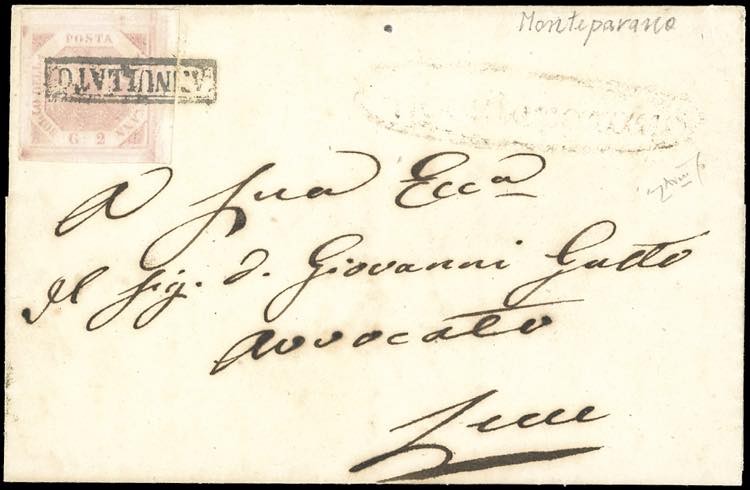 Monteparano
POSTA
ANNULLATO
G. 2
A Sua Ecca
Il sig. d. Giovanni Gutto
Avvocato
Lecce